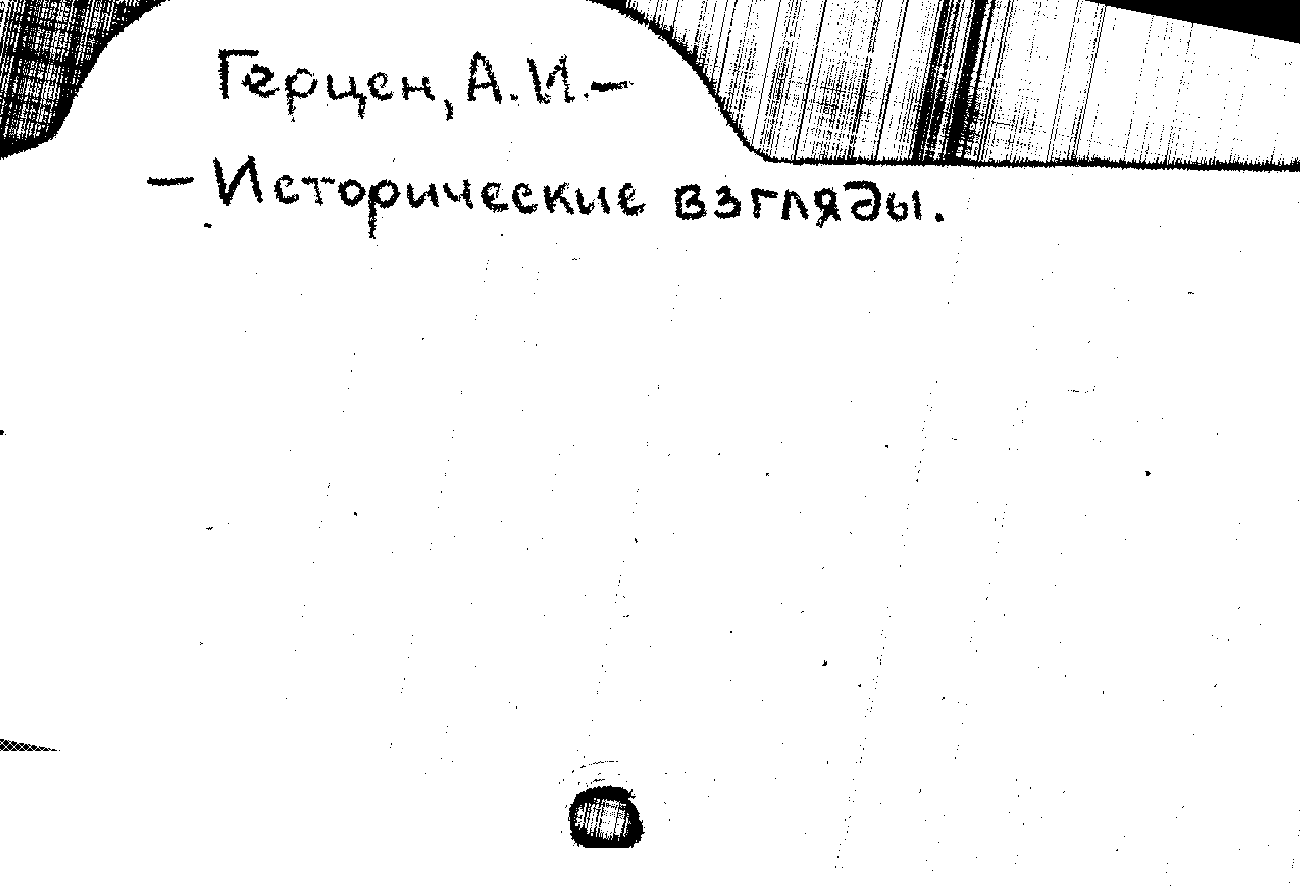 Герцен, А.И.–
– Исторические взгляды.